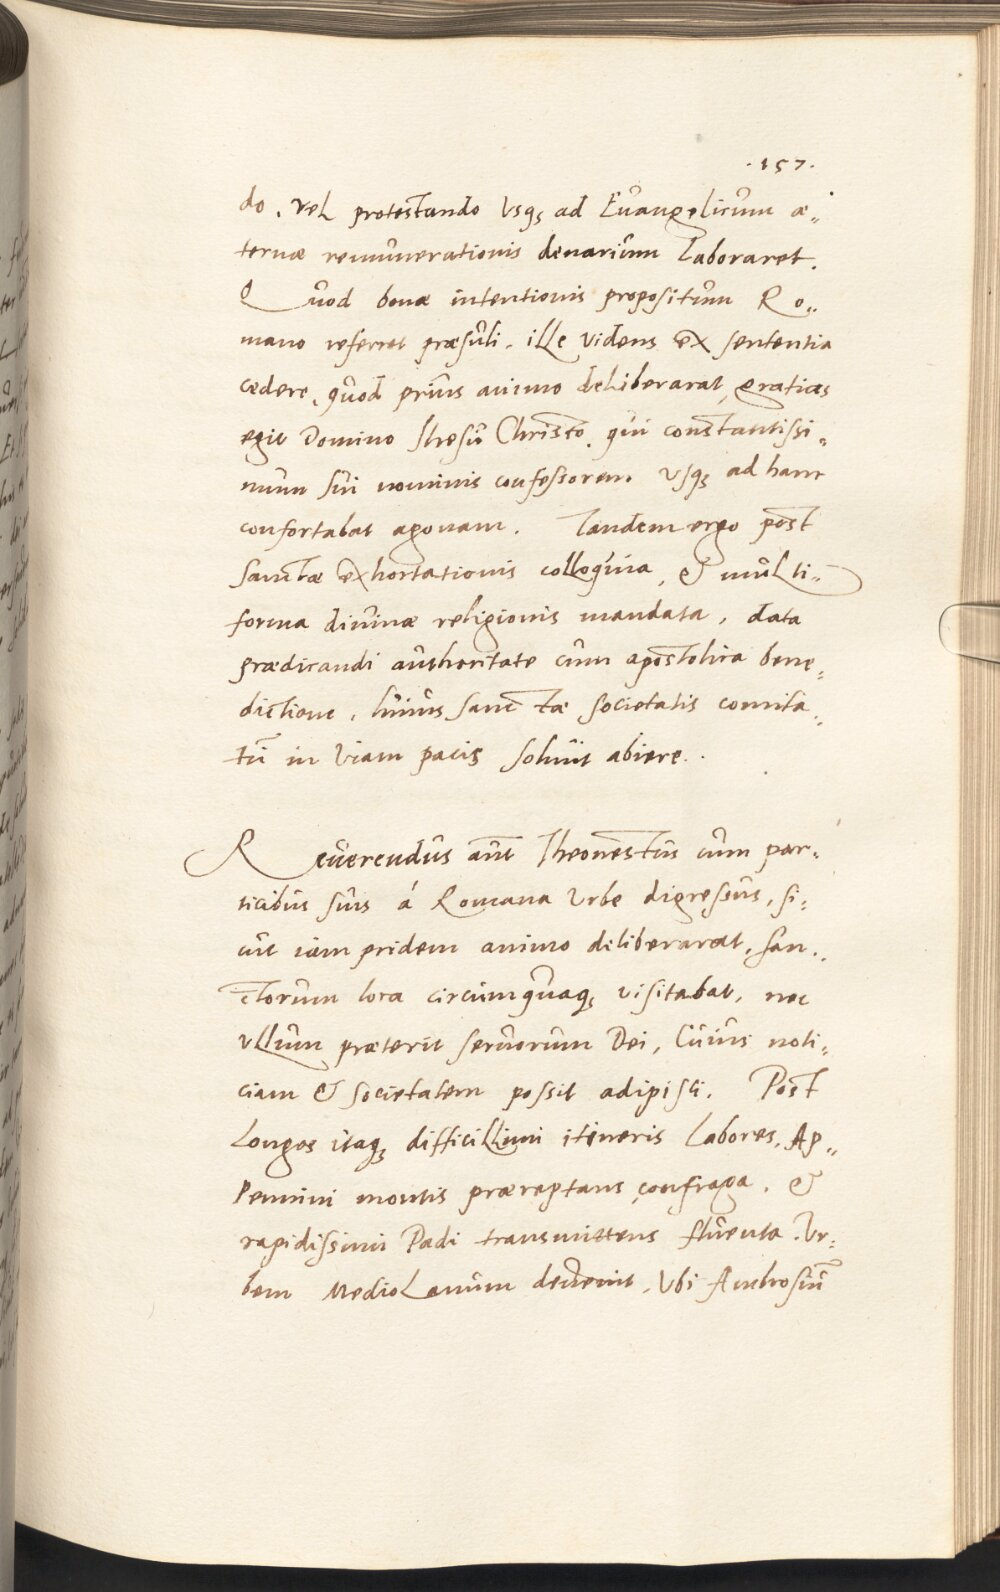 .157.
do, vel protestando Vsq₃ ad Euangelicum æ„
ternæ remunerationis denarium Laboraret.
Quod bonæ intentionis propositum Ro„
mano referret præsuli. ille videns ex sententia
cedere, quod prius animo deliberarat, gratias
egit Domino Jhesu Christo. qui constantissi„
mum sui nominis confessorem Vsq₃ ad hanc
confortabat agonam. Tandem ergo post
sanctæ exhortationis colloquia, & multi„
forma diuinæ religionis mandata, data
prædicandi authoritate cum apostolica bene„
dictione, huius sanctæ societatis comita„
tū in Viam pacis soluit abiere.
Reuerendus aūt Theonestus cum par„
ticibus suis á Romana Vrbe digressus, si„
cut iam pridem animo deliberarat, san„
ctorum loca circumquaq₃ visitabat, nec
vllum præterit seruorum Dei, Cuius noti„
ciam & societatem possit adipisci. Post
Longos itaq₃ difficillimi itineris Labores, Ap„
Pennini montis præreptans confraga, &
rapidissimi Padi transmittens fluenta. Vr„
bem MedioLanum deuenit, Vbi Ambrosiū